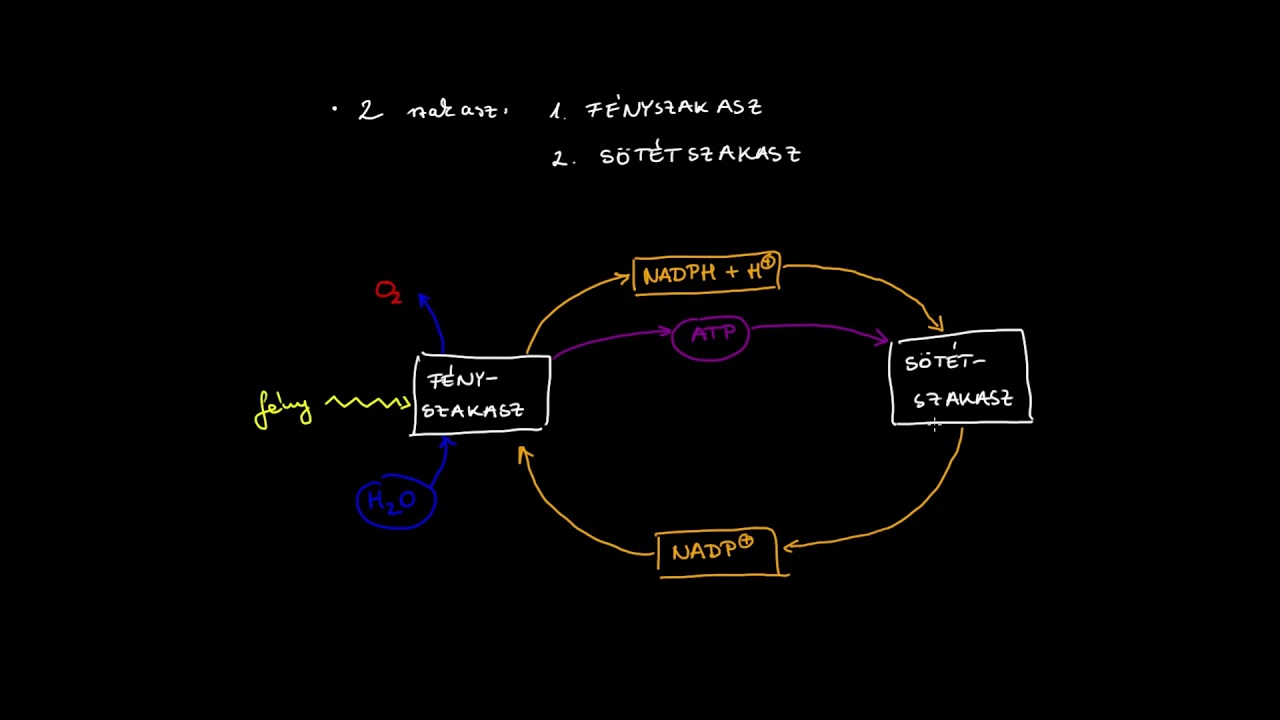 · 2 szakasz: 1. FÉNYSZAKASZ
2. SÖTÉTSZAKASZ
NADPH + H⊕
O₂
ATP
FÉNY-
SZAKASZ
SÖTÉT-
SZAKASZ
fény
H₂O
NADP⊕